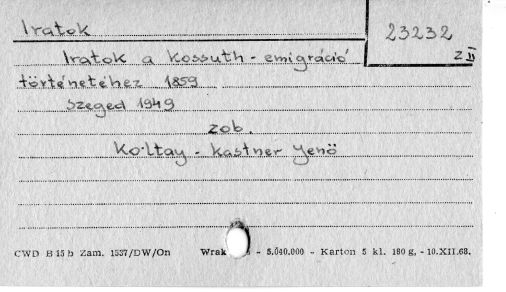 Iratok
23232
Z II
Iratok a Kossuth - emigráció
történetéhez 1859
Szeged 1949
zob.
Koltay - Kastner Jenö
CWD B 15 b Zam. 1537/DW/On Wrak - 5.040.000 - Karton 5 kl. 180 g, - 10.XII.68.